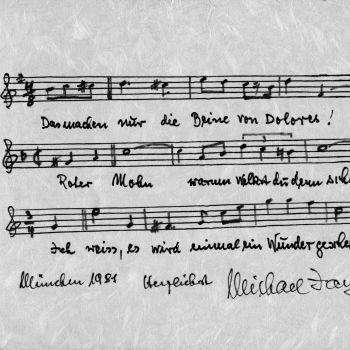 Das machen nur die Beine von Dolores!
Roter Mohn warum welkst du denn scho
Ich weiss, es wird einmal ein Wunder gescheh
München 1981 Herzlichst Michael Jary